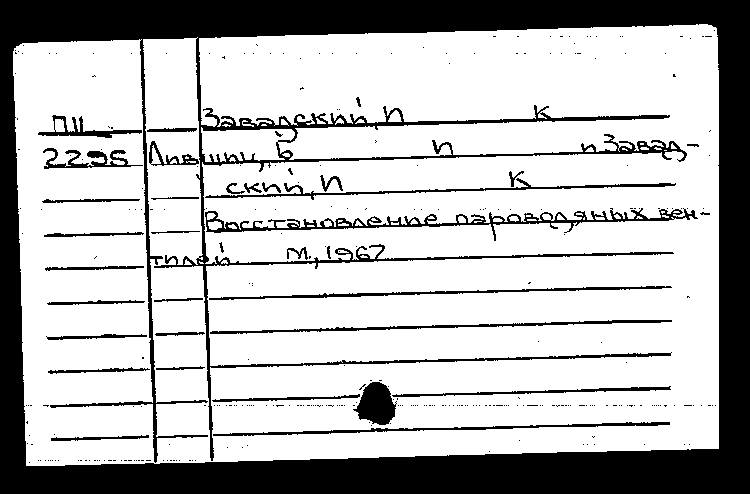 П11 Завадский, П К
2295 Лившиц, Б П и Завад-
ский, П К
Восстановление пароводяных вен-
тилей М., 1967